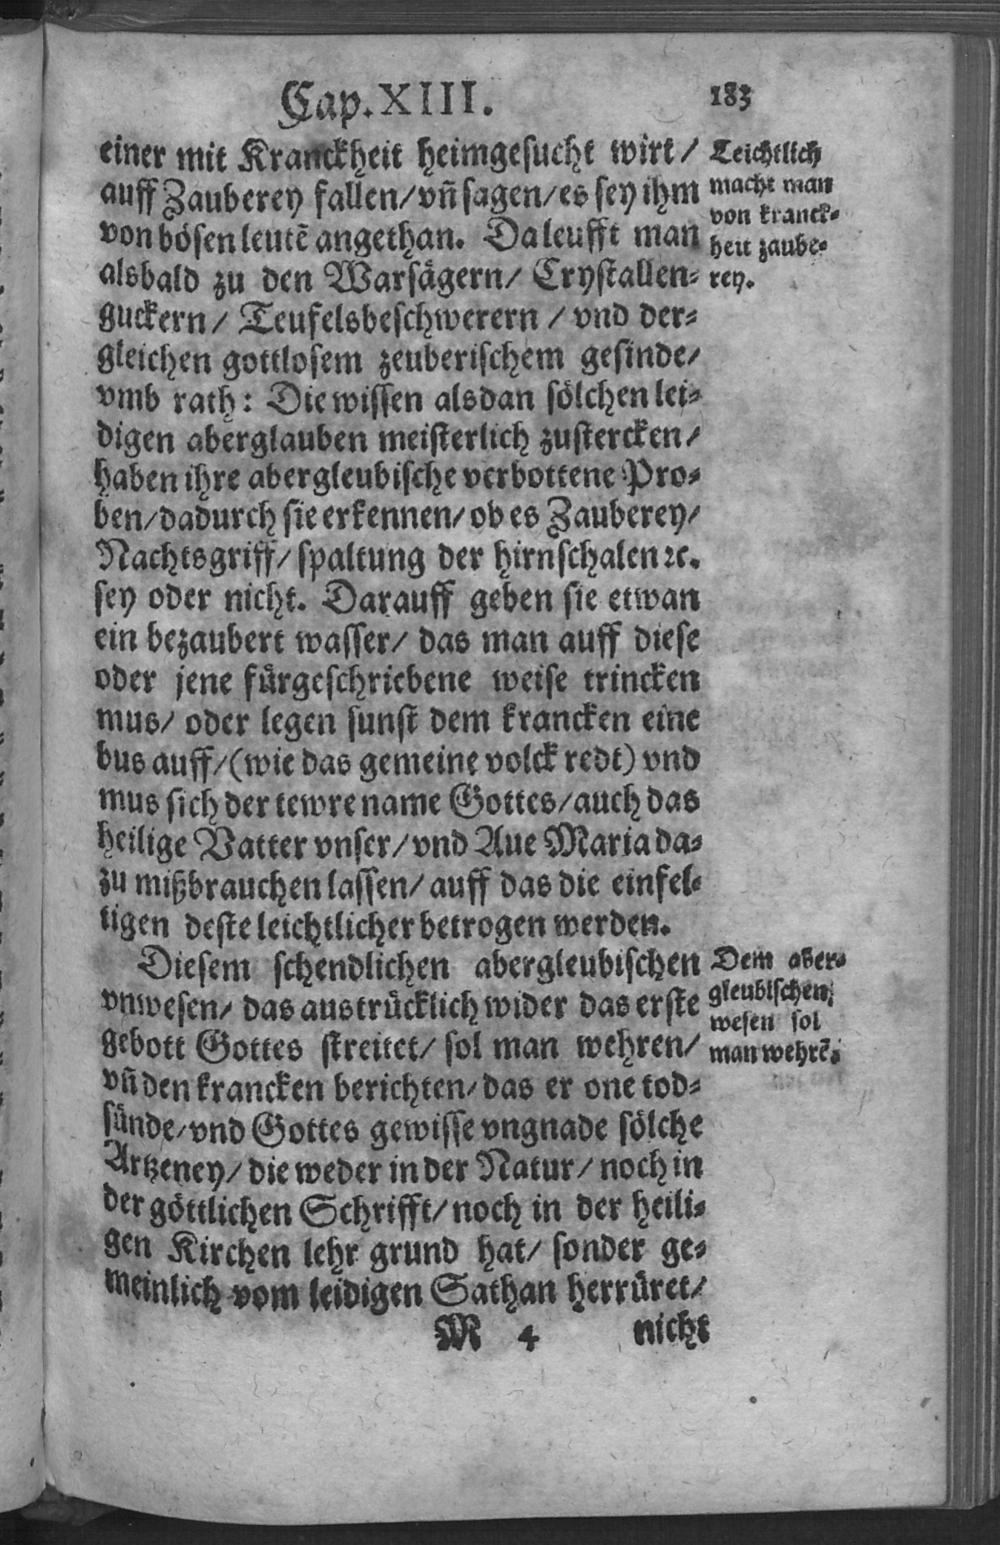 Cap. XIII.
183
einer mit Kranckheit heimgesucht wirt/
auff Zauberey fallen/ vñ sagen/ es sey ihm
von bösen leutē angethan. Da leufft man
alsbald zu den Warsägern/ Crystallen-
guckern/ Teufelsbeschwerern / vnd der-
gleichen gottlosem zeuberischem gesinde/
vmb rath: Die wissen alsdan sölchen lei-
digen aberglauben meisterlich zustercken/
haben ihre abergleubische verbottene Pro-
ben/ dadurch sie erkennen/ ob es Zauberey/
Nachtsgriff/ spaltung der hirnschalen ꝛc.
sey oder nicht. Darauff geben sie etwan
ein bezaubert wasser/ das man auff diese
oder jene fürgeschriebene weise trincken
mus/ oder legen sunst dem krancken eine
bus auff/ (wie das gemeine volck redt) vnd
mus sich der tewre name Gottes/ auch das
heilige Vatter vnser/ vnd Aue Maria da-
zu mißbrauchen lassen/ auff das die einfel-
tigen deste leichtlicher betrogen werden.
Diesem schendlichen abergleubischen
vnwesen/ das austrücklich wider das erste
gebott Gottes streitet/ sol man wehren/
vñ den krancken berichten/ das er one tod-
sünde/ vnd Gottes gewisse vngnade sölche
Artzeney/ die weder in der Natur/ noch in
der göttlichen Schrifft/ noch in der heili-
gen Kirchen lehr grund hat/ sonder ge-
meinlich vom leidigen Sathan herrüret/
M 4
nicht
Leichtlich
macht man
von kranck-
heit zaube-
rey.
Dem aber-
gleubischen
wesen sol
man wehrē.